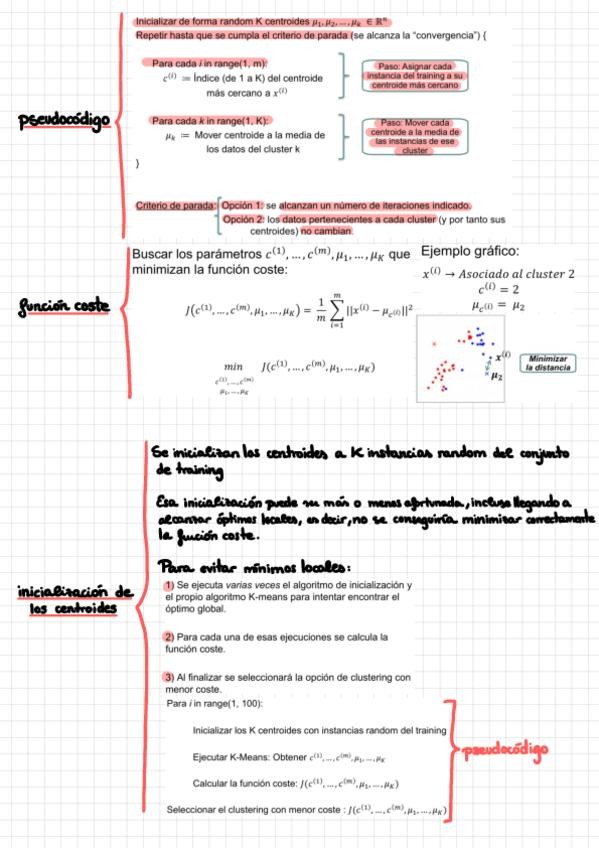 Inicializar de forma random K centroides μ₁, μ₂, ..., μₖ ∈ ℝⁿ
Repetir hasta que se cumpla el criterio de parada (se alcanza la "convergencia") {
Para cada i in range(1, m):
c⁽ⁱ⁾ := Índice (de 1 a K) del centroide
más cercano a x⁽ⁱ⁾
Paso: Asignar cada
instancia del training a su
centroide más cercano
pseudocódigo
Para cada k in range(1, K):
μₖ := Mover centroide a la media de
los datos del cluster k
Paso: Mover cada
centroide a la media de
las instancias de ese
cluster
}
Criterio de parada: Opción 1: se alcanzan un número de iteraciones indicado.
Opción 2: los datos pertenecientes a cada cluster (y por tanto sus
centroides) no cambian.
función coste
Buscar los parámetros c⁽¹⁾, ..., c⁽ᵐ⁾, μ₁, ..., μ_K que
minimizan la función coste:
J(c⁽¹⁾, ..., c⁽ᵐ⁾, μ₁, ..., μ_K) = 1/m ∑_{i=1}^{m} ||x⁽ⁱ⁾ − μ_{c⁽ⁱ⁾}||²
min J(c⁽¹⁾, ..., c⁽ᵐ⁾, μ₁, ..., μ_K)
c⁽¹⁾, ..., c⁽ᵐ⁾
μ₁, ..., μ_K
Ejemplo gráfico:
x⁽ⁱ⁾ → Asociado al cluster 2
c⁽ⁱ⁾ = 2
μ_{c⁽ⁱ⁾} = μ₂
x⁽ⁱ⁾
μ₂
Minimizar
la distancia
inicialización de
los centroides
Se inicializan los centroides a K instancias random del conjunto
de training
Esa inicialización puede ser más o menos afortunada, incluso llegando a
alcanzar óptimos locales, es decir, no se conseguiría minimizar correctamente
la función coste.
Para evitar mínimos locales:
1) Se ejecuta varias veces el algoritmo de inicialización y
el propio algoritmo K-means para intentar encontrar el
óptimo global.
2) Para cada una de esas ejecuciones se calcula la
función coste.
3) Al finalizar se seleccionará la opción de clustering con
menor coste.
Para i in range(1, 100):
Inicializar los K centroides con instancias random del training
Ejecutar K-Means: Obtener c⁽¹⁾, ..., c⁽ᵐ⁾, μ₁, ..., μ_K
Calcular la función coste: J(c⁽¹⁾, ..., c⁽ᵐ⁾, μ₁, ..., μ_K)
Seleccionar el clustering con menor coste : J(c⁽¹⁾, ..., c⁽ᵐ⁾, μ₁, ..., μ_K)
pseudocódigo